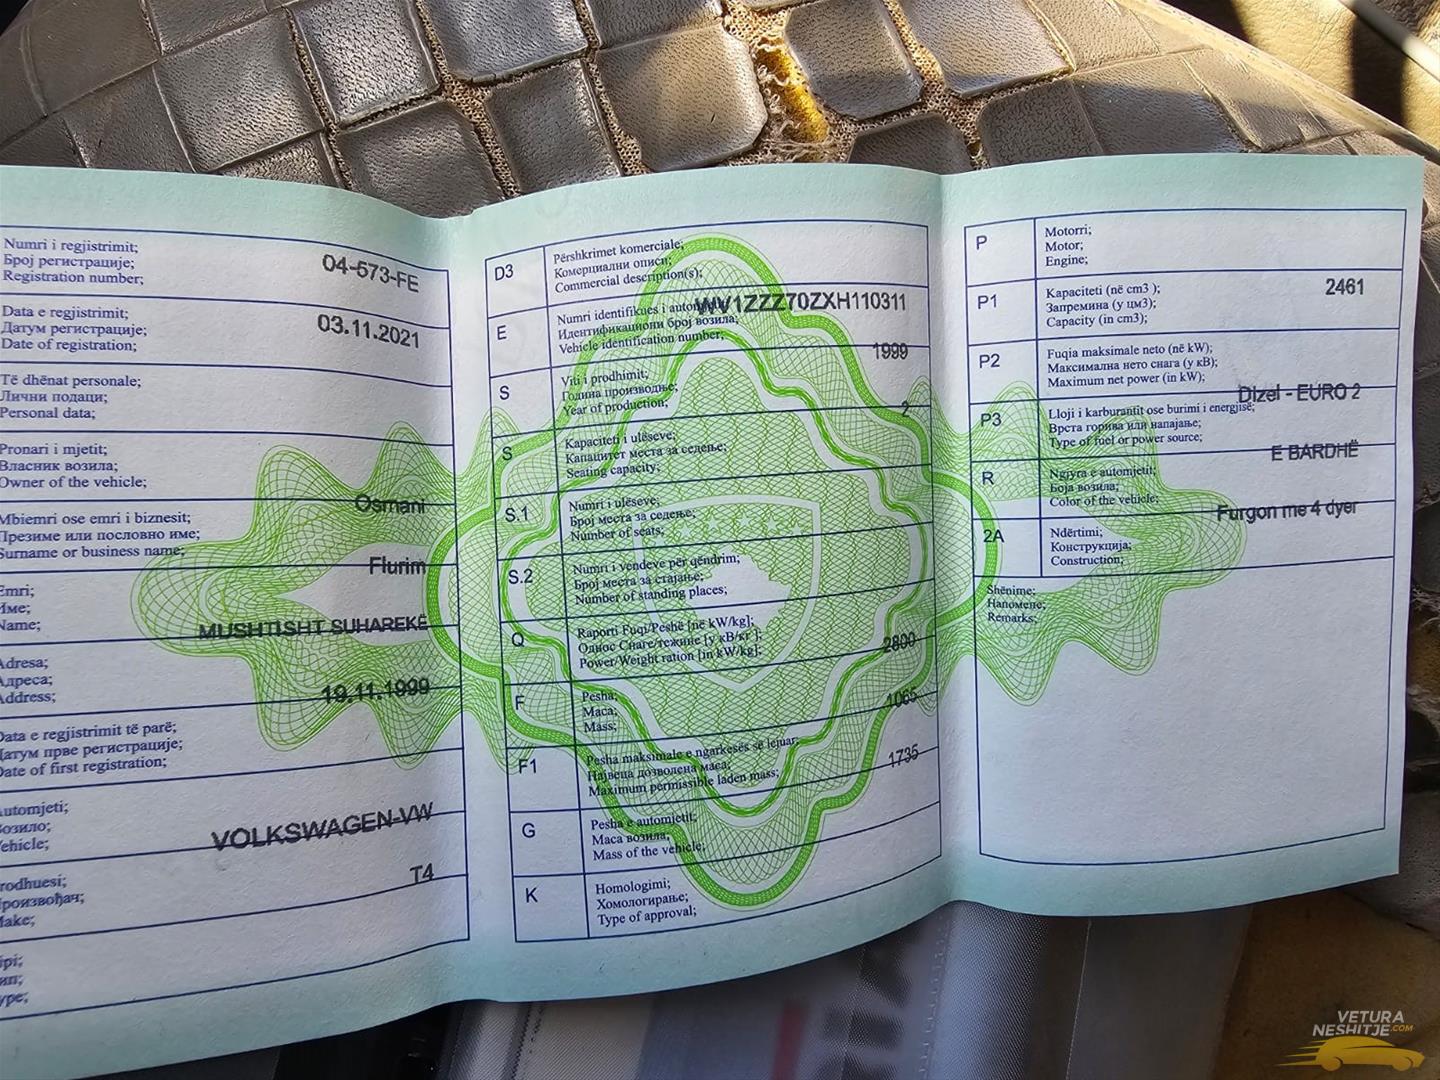 Numri i regjistrimit;
Број регистрације;
Registration number;
04-573-FE
Data e regjistrimit;
Датум регистрације;
Date of registration;
03.11.2021
Të dhënat personale;
Лични подаци;
Personal data;
Pronari i mjetit;
Власник возила;
Owner of the vehicle;
Mbiemri ose emri i biznesit;
Презиме или пословно име;
Surname or business name;
Osmani
Emri;
Име;
Name;
Flurim
Adresa;
Адреса;
Address;
MUSHTISHT SUHAREKË
Data e regjistrimit të parë;
Датум прве регистрације;
Date of first registration;
19.11.1999
Automjeti;
Возило;
Vehicle;
Prodhuesi;
Произвођач;
Make;
VOLKSWAGEN-VW
T4
D3
Përshkrimet komerciale;
Комерциални описи;
Commercial description(s);
E
Numri identifikues i
Идентификациони број возила;
Vehicle identification number;
WV1ZZZ70ZXH110311
S
Viti i prodhimit;
Година производње;
Year of production;
1999
S
Kapaciteti i ulëseve;
Капацитет места за седење;
Seating capacity;
2
S.1
Numri i ulëseve;
Број места за седење;
Number of seats;
S.2
Numri i vendeve për qëndrim;
Број места за стајање;
Number of standing places;
Q
Raporti Fuqi/Peshë [në kW/kg];
Однос Снаге/тежине [у кВ/кг ];
Power/Weight ration [in kW/kg];
F
Pesha;
Маса;
Mass;
2800
F1
Pesha maksimale e ngarkesës së lejuar;
Највећа дозвољена маса;
Maximum permissible laden mass;
1065
G
Pesha e automjetit;
Маса возила;
Mass of the vehicle;
1735
K
Homologimi;
Хомологирање;
Type of approval;
P
Motorri;
Мотор;
Engine;
P1
Kapaciteti (në cm3 );
Запремина (у цм3);
Capacity (in cm3);
2461
P2
Fuqia maksimale neto (në kW);
Максимална нето снага (у кВ);
Maximum net power (in kW);
P3
Lloji i karburantit ose burimi i energjisë;
Врста горива или напајање;
Type of fuel or power source;
Dizel - EURO 2
R
Ngjyra e automjetit;
Боја возила;
Color of the vehicle;
E BARDHË
2A
Ndërtimi;
Конструкција;
Construction;
Furgon me 4 dyer
Shënime;
Напомене;
Remarks;
VETURA
NESHITJE.COM